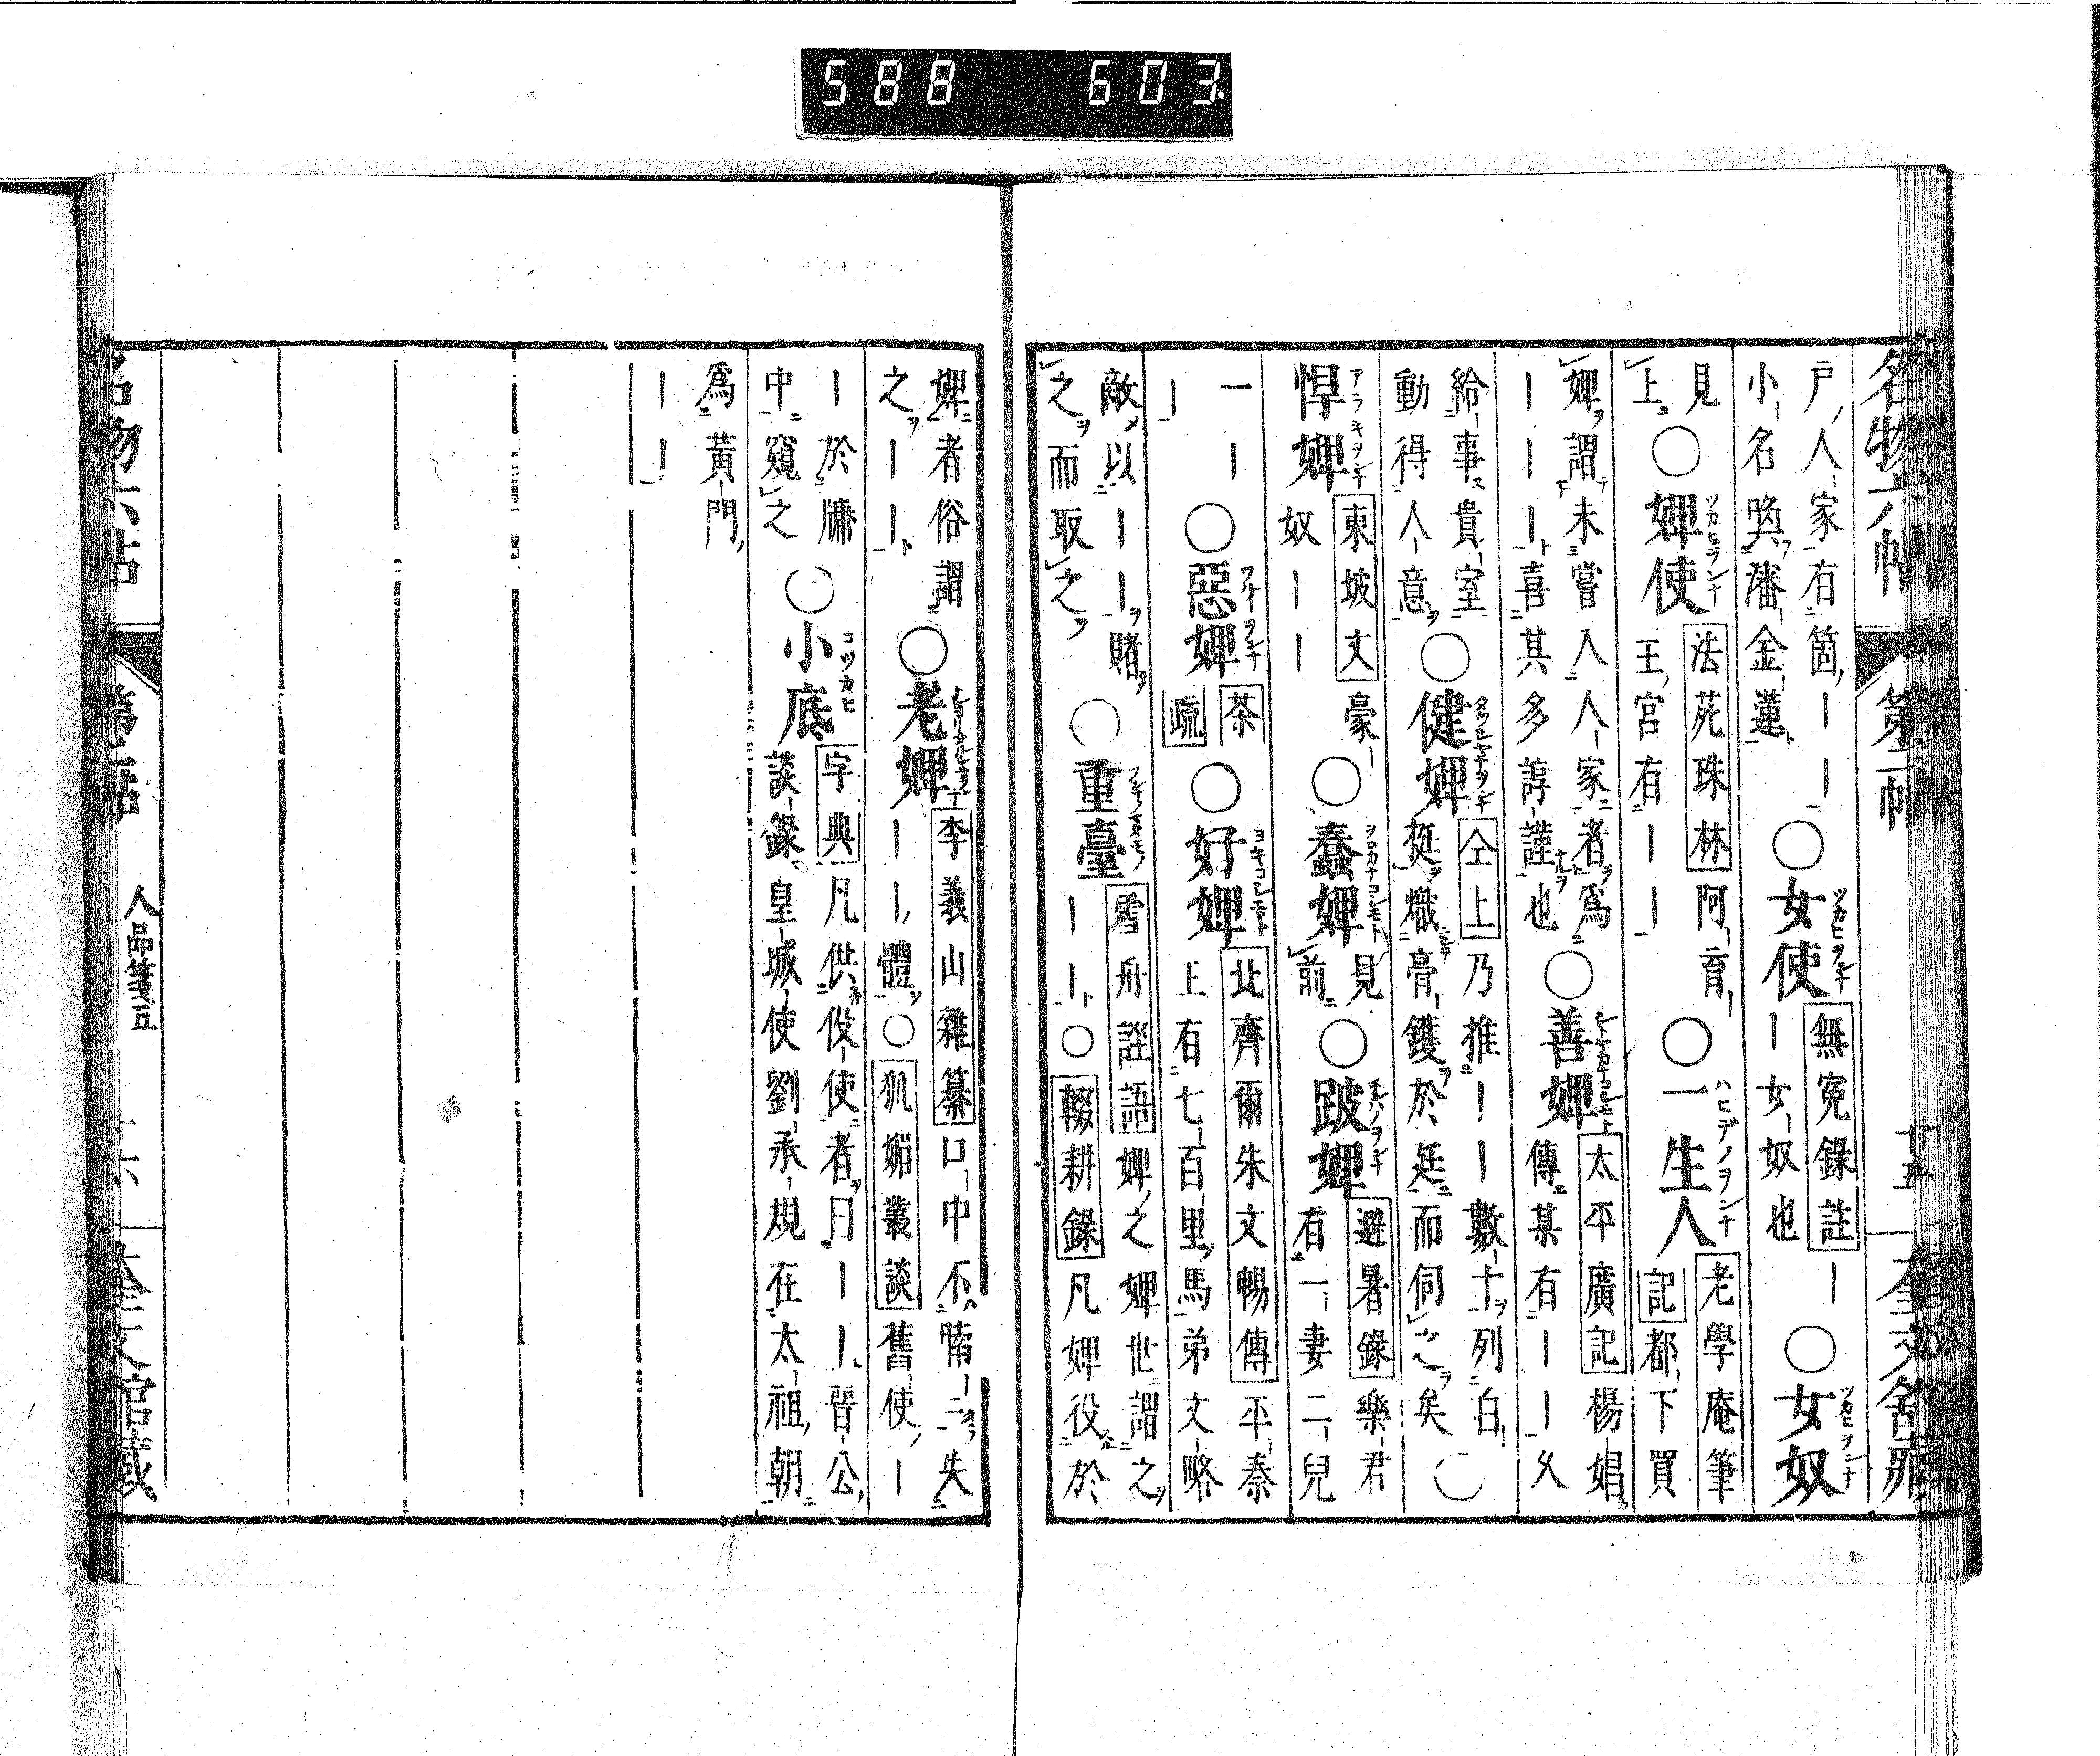 588 603
名物六帖 第二帖 十五 奎文舘藏
戸人家有箇丨丨
小名喚潘金蓮
○女使 ツカヒヲンナ
無冤錄註 丨
丨女奴也
○女奴 ツカヒヲンナ
見
上
○婢使 ツカヒヲンナ
法苑珠林 阿育
王宮有丨丨
○一生人 ハヒデノヲンナ
老學庵筆
記 都下買
婢謂未嘗入人家者爲
丨丨丨喜其多諄謹也
○善婢
太平廣記 楊娼
傳某有丨丨父
給事貴室
動得人意
○健婢
仝上 乃推丨丨數十列白
挺熾膏鑊於廷而伺之矣
○悍婢 アラキヲンナ
東坡文 豪
奴丨丨
○蠢婢 ヲロカナコシモト
見
前
○跛婢
避暑錄 樂君
有一妻二兒
一丨
丨
○惡婢
茶
疏
○好婢
北齊爾朱文暢傳 平秦
王有七百里馬弟文略
敵以丨丨賭
之而取之
○重臺
雪舟詅語 婢之婢世謂之
丨丨○輟耕錄 凡婢役於
婢者俗謂
之丨丨
○老婢
李義山雜纂 口中不喃二失
丨丨體○狐媚叢談 舊使丨
丨於牖
中窺之
○小底 コツカヒ
字典 凡供役使者曰丨丨晋公
談錄皇城使劉承規在太祖朝
爲黃門
丨丨
名物六帖 第二帖 人品箋五 十六 奎文舘藏